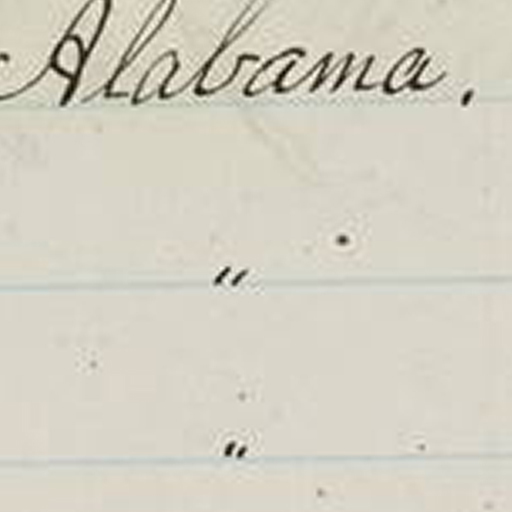 Alabama.
"
"